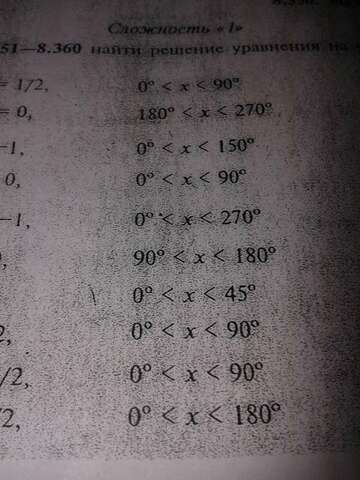 Сложность «1»
51—8.360 найти решение уравнения на
= 1/2, 0° < x < 90°
= 0, 180° < x < 270°
−1, 0° < x < 150°
0, 0° < x < 90°
−1, 0° < x < 270°
, 90° < x < 180°
0° < x < 45°
2, 0° < x < 90°
/2, 0° < x < 90°
/2, 0° < x < 180°